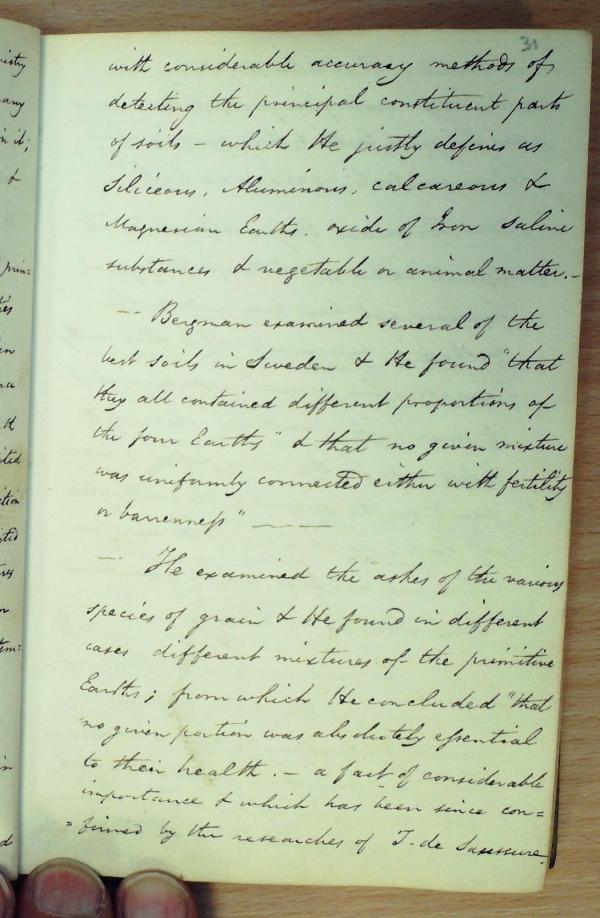 31
with considerable accuracy methods of
detecting the principal constituent parts
of soils - which He justly defines as
Siliceous, Aluminous, calcareous &
Magnesian Earths. oxide of Iron saline
substances & vegetable or animal matter. -
-- Bergman examined several of the
best soils in Sweden & He found "that
they all contained different proportions of
the four Earths" & that no given mixture
was uniformly connected either with fertility
or barrenness" ———
— He examined the ashes of the various
species of grain & He found in different
cases different mixtures of the primitive
Earths; from which He concluded "that
"no given portion was absolutely essential
to their health. - a fact of considerable
importance & which has been since con=
=firmed by the researches of T. de Saussure.